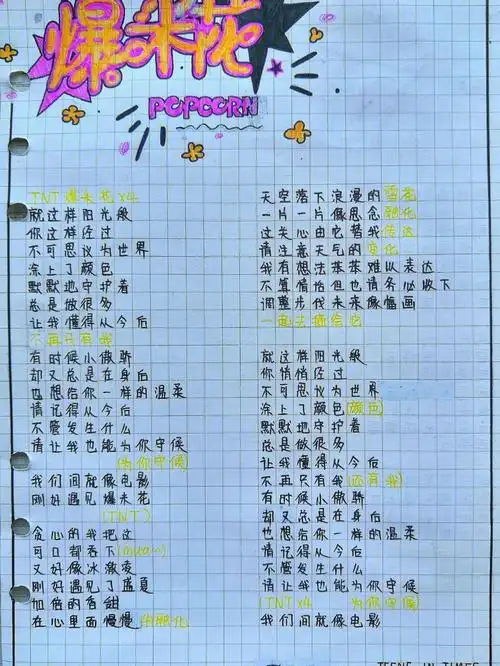 爆米花
POPCORN
TNT 爆米花 x4
就这样阳光般
你这样经过
不可思议为世界
涂上了颜色
默默地守护着
总是做很多
让我懂得从今后
不再只有我
有时候小傲骄
却又总是在身后
也想给你一样的温柔
请记得从今后
不管发生什么
请让我也能为你守候
(为你守候)
我们间就像电影
刚好遇见爆米花
(TNT)
贪心的我把这
可口都吞下(mua~)
又好像冰激凌
刚好遇见了盛夏
加倍的香甜
在心里面慢慢的融化
天空落下浪漫的雪花
一片一片像思念融化
这关心由它替我传达
请注意天气的变化
我有想法羞羞难以表达
不算情话但也请务必收下
调整步伐未来像幅画
一再去描绘它
就这样阳光般
你悄悄经过
不可思议为世界
涂上了颜色(颜色)
默默地守护着
总是做很多
让我懂得从今后
不再只有我(还有我)
有时候小傲骄
却又总是在身后
也想给你一样的温柔
请记得从今后
不管发生什么
请让我也能为你守候
(TNTx4 为你守候)
我们间就像电影
TEENS IN TIMES